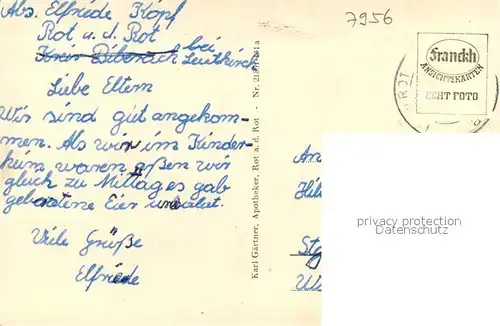 Abs. Elfriede Kopf
Rot a. d. Rot
Kreis Biberach bei
Leutkirch
7956
Franckh
ANSICHTSKARTEN
ECHT FOTO
ROT
Liebe Eltern
Wir sind gut angekom-
men. Als wir im Kinder-
heim waren aßen wir
gleich zu Mittag es gab
gebratene Eier
Viele Grüße
Elfriede
Karl Gärtner, Apotheker, Rot a. d. Rot - Nr.
An
privacy protection
Datenschutz